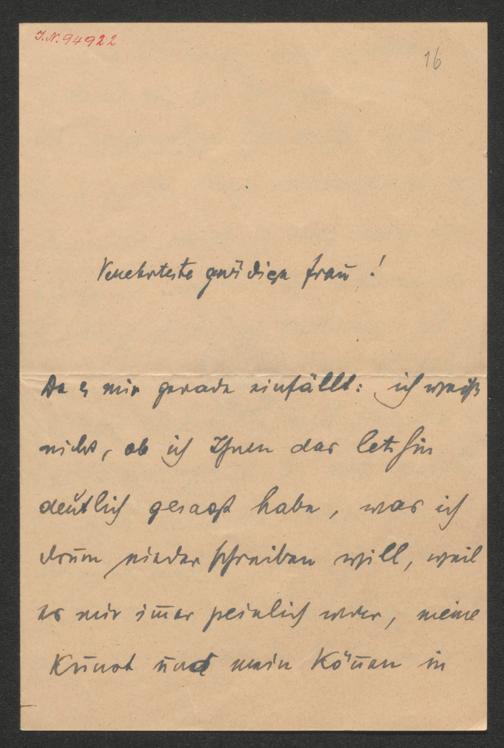 I.N. 94922
16
Verehrteste gnädige Frau!
Da es mir gerade einfällt: ich weiß
nicht, ob ich Ihnen das letzthin
deutlich gesagt habe, was ich
drum niederschreiben will, weil
es mir im̅er peinlich wäre, meine
Kunst und mein Kön̅en in